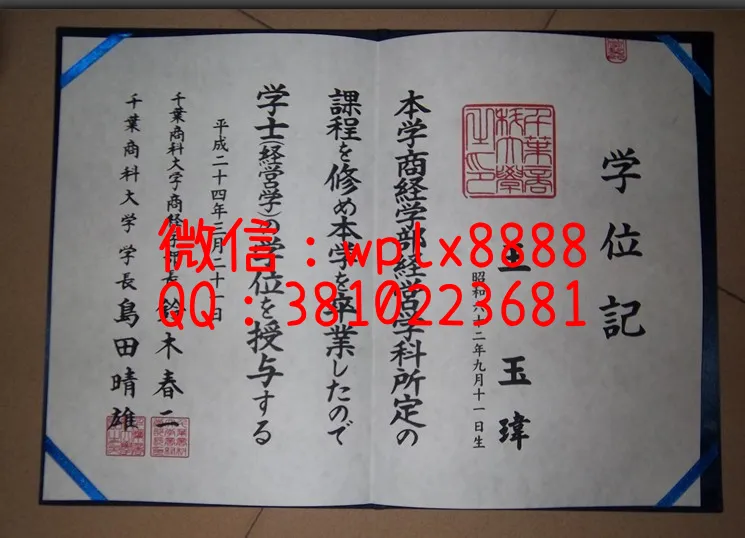 学位記
王玉瑋
昭和六十二年九月十一日生
本学商経学部経営学科所定の
課程を修め本学を卒業したので
学士(経営学)の学位を授与する
平成二十四年三月二十一日
千葉商科大学商経学部長 鈴木春二
千葉商科大学 学長 島田晴雄
微信：wplx8888
QQ：3810223681